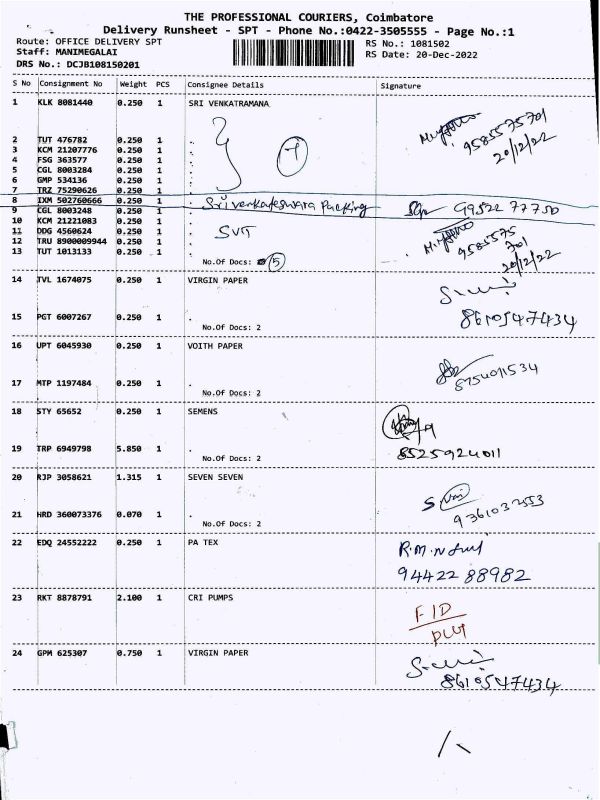 THE PROFESSIONAL COURIERS, Coimbatore
Delivery Runsheet - SPT - Phone No.:0422-3505555 - Page No.:1
Route: OFFICE DELIVERY SPT
Staff: MANIMEGALAI
DRS No.: DCJB108150201
RS No.: 1081502
RS Date: 20-Dec-2022
S No Consignment No Weight PCS Consignee Details Signature
1 KLK 8081440 0.250 1 SRI VENKATRAMANA
9585575701
20/12/22
2 TUT 476782 0.250 1 .
3 KCM 21207776 0.250 1 .
4 FSG 363577 0.250 1 .
5 CGL 8003284 0.250 1 .
6 GMP 534136 0.250 1 .
7 TRZ 75290626 0.250 1 .
8 IXM 502760666 0.250 1 . Sri venkateswara Packing 99522 77750
9 CGL 8003248 0.250 1 .
10 KCM 21221083 0.250 1 .
11 DDG 4560624 0.250 1 . SVT
12 TRU 8900009944 0.250 1 .
13 TUT 1013133 0.250 1 .
9585575
701
20/12/22
No.Of Docs: 5
14 TVL 1674075 0.250 1 VIRGIN PAPER
15 PGT 6007267 0.250 1 . 8610547434
No.Of Docs: 2
16 UPT 6045930 0.250 1 VOITH PAPER
8754011534
17 MTP 1197484 0.250 1 .
No.Of Docs: 2
18 STY 65652 0.250 1 SEMENS
19 TRP 6949798 5.850 1 . 8525924011
No.Of Docs: 2
20 RJP 3058621 1.315 1 SEVEN SEVEN
21 HRD 360073376 0.070 1 . 9361032553
No.Of Docs: 2
22 EDQ 24552222 0.250 1 PA TEX
94422 88982
23 RKT 8878791 2.100 1 CRI PUMPS
24 GPM 625307 0.750 1 VIRGIN PAPER
8610547434